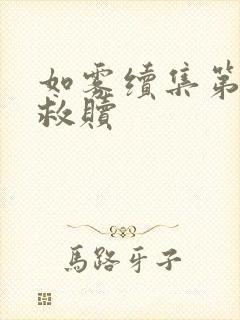 如雾續集第
救贖
馬路牙子